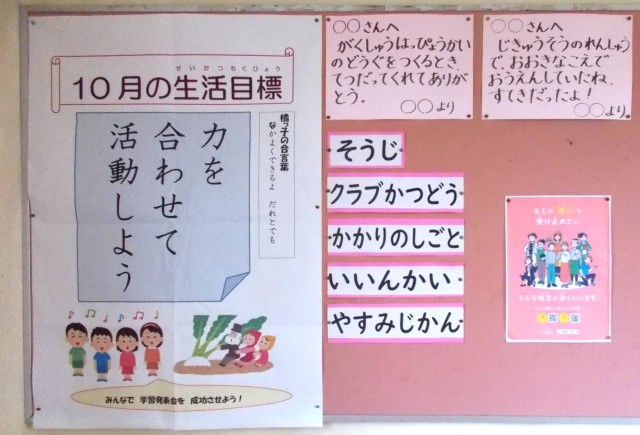 せいかつもくひょう
10月の生活目標
橘っ子の合言葉
なかよくできるよ だれとでも
力を
合わせて
活動しよう
みんなで 学習発表会を 成功させよう！
○○さんへ
がくしゅうはっぴょうかい
のどうぐをつくるとき、
てつだってくれてありが
とう。
○○より
○○さんへ
じきゅうそうのれんしゅう
で、おおきなこえで
おうえんしていたね。
すてきだったよ！
○○より
そうじ
クラブかつどう
かかりのしごと
いいんかい
やすみじかん
受け止めたい